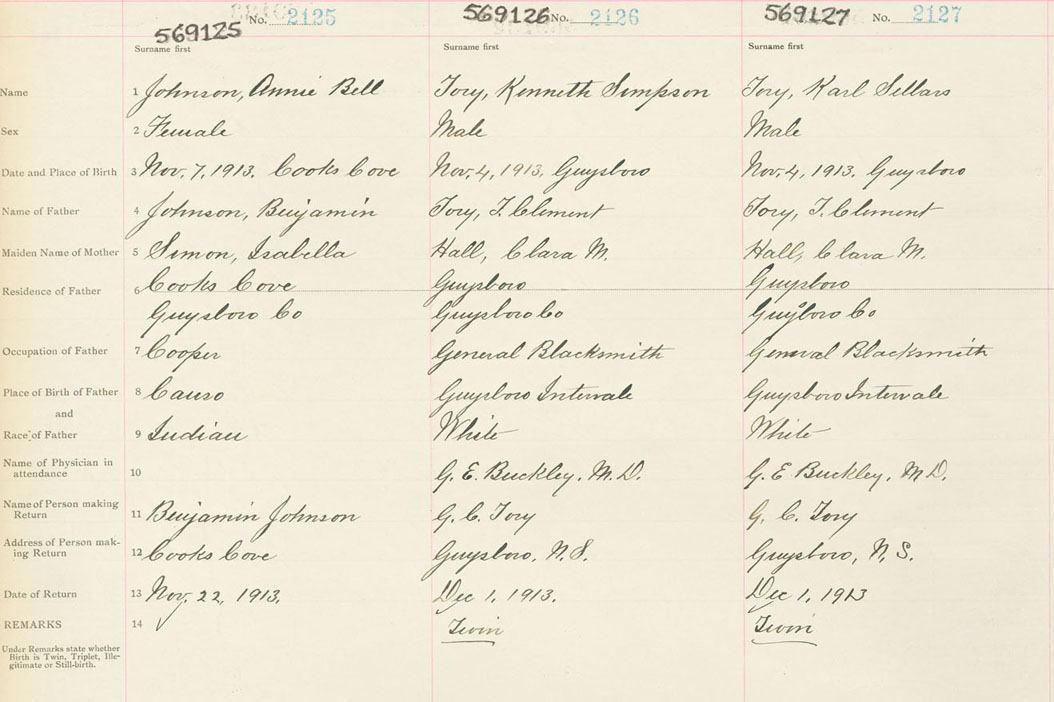 569125 No. 2125 569126 No. 2126 569127 No. 2127
Surname first Surname first Surname first
Name 1 Johnson, Annie Bell Tory, Kenneth Simpson Tory, Karl Sellars
Sex 2 Female Male Male
Date and Place of Birth 3 Nov. 7, 1913. Cooks Cove Nov. 4, 1913, Guysboro Nov. 4, 1913. Guysboro
Name of Father 4 Johnson, Benjamin Tory, T. Clement Tory, T. Clement
Maiden Name of Mother 5 Simon, Isabella Hall, Clara M. Hall, Clara M.
Residence of Father 6 Cooks Cove Guysboro Guysboro
Guysboro Co Guysboro Co Guysboro Co
Occupation of Father 7 Cooper General Blacksmith General Blacksmith
Place of Birth of Father 8 Canso Guysboro Intervale Guysboro Intervale
and
Race of Father 9 Indian White White
Name of Physician in
attendance 10 G. E. Buckley, M.D. G. E Buckley, M D.
Name of Person making
Return 11 Benjamin Johnson G. C. Tory G. C. Tory
Address of Person mak-
ing Return 12 Cooks Cove Guysboro, N.S. Guysboro, N.S.
Date of Return 13 Nov. 22, 1913. Dec 1, 1913. Dec 1, 1913
REMARKS 14 Twin Twin
Under Remarks state whether
Birth is Twin, Triplet, Ille-
gitimate or Still-birth.